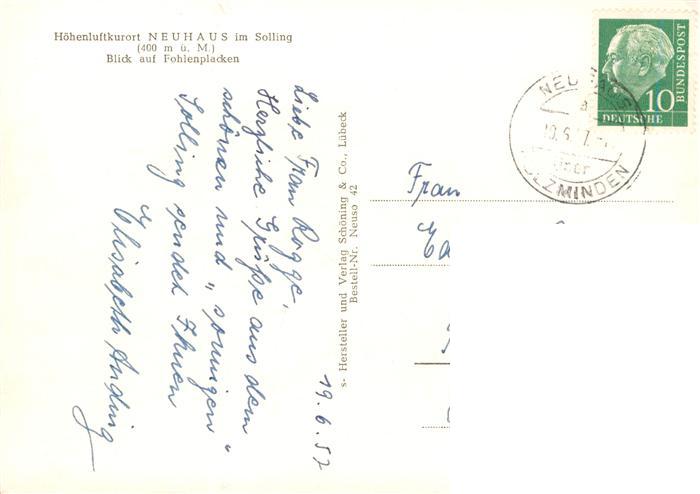 Höhenluftkurort NEUHAUS im Solling
(400 m ü. M.)
Blick auf Fohlenplacken
Liebe Frau Rogge,
Herzliche Grüße aus dem
schönen und „sonnigen“
Solling sendet Ihnen
Elisabeth Anding
19.6.57
s- Hersteller und Verlag Schöning & Co., Lübeck
Bestell-Nr. Neuso 42
DEUTSCHE
BUNDESPOST
10
NEUHAUS
über
HOLZMINDEN
Frau